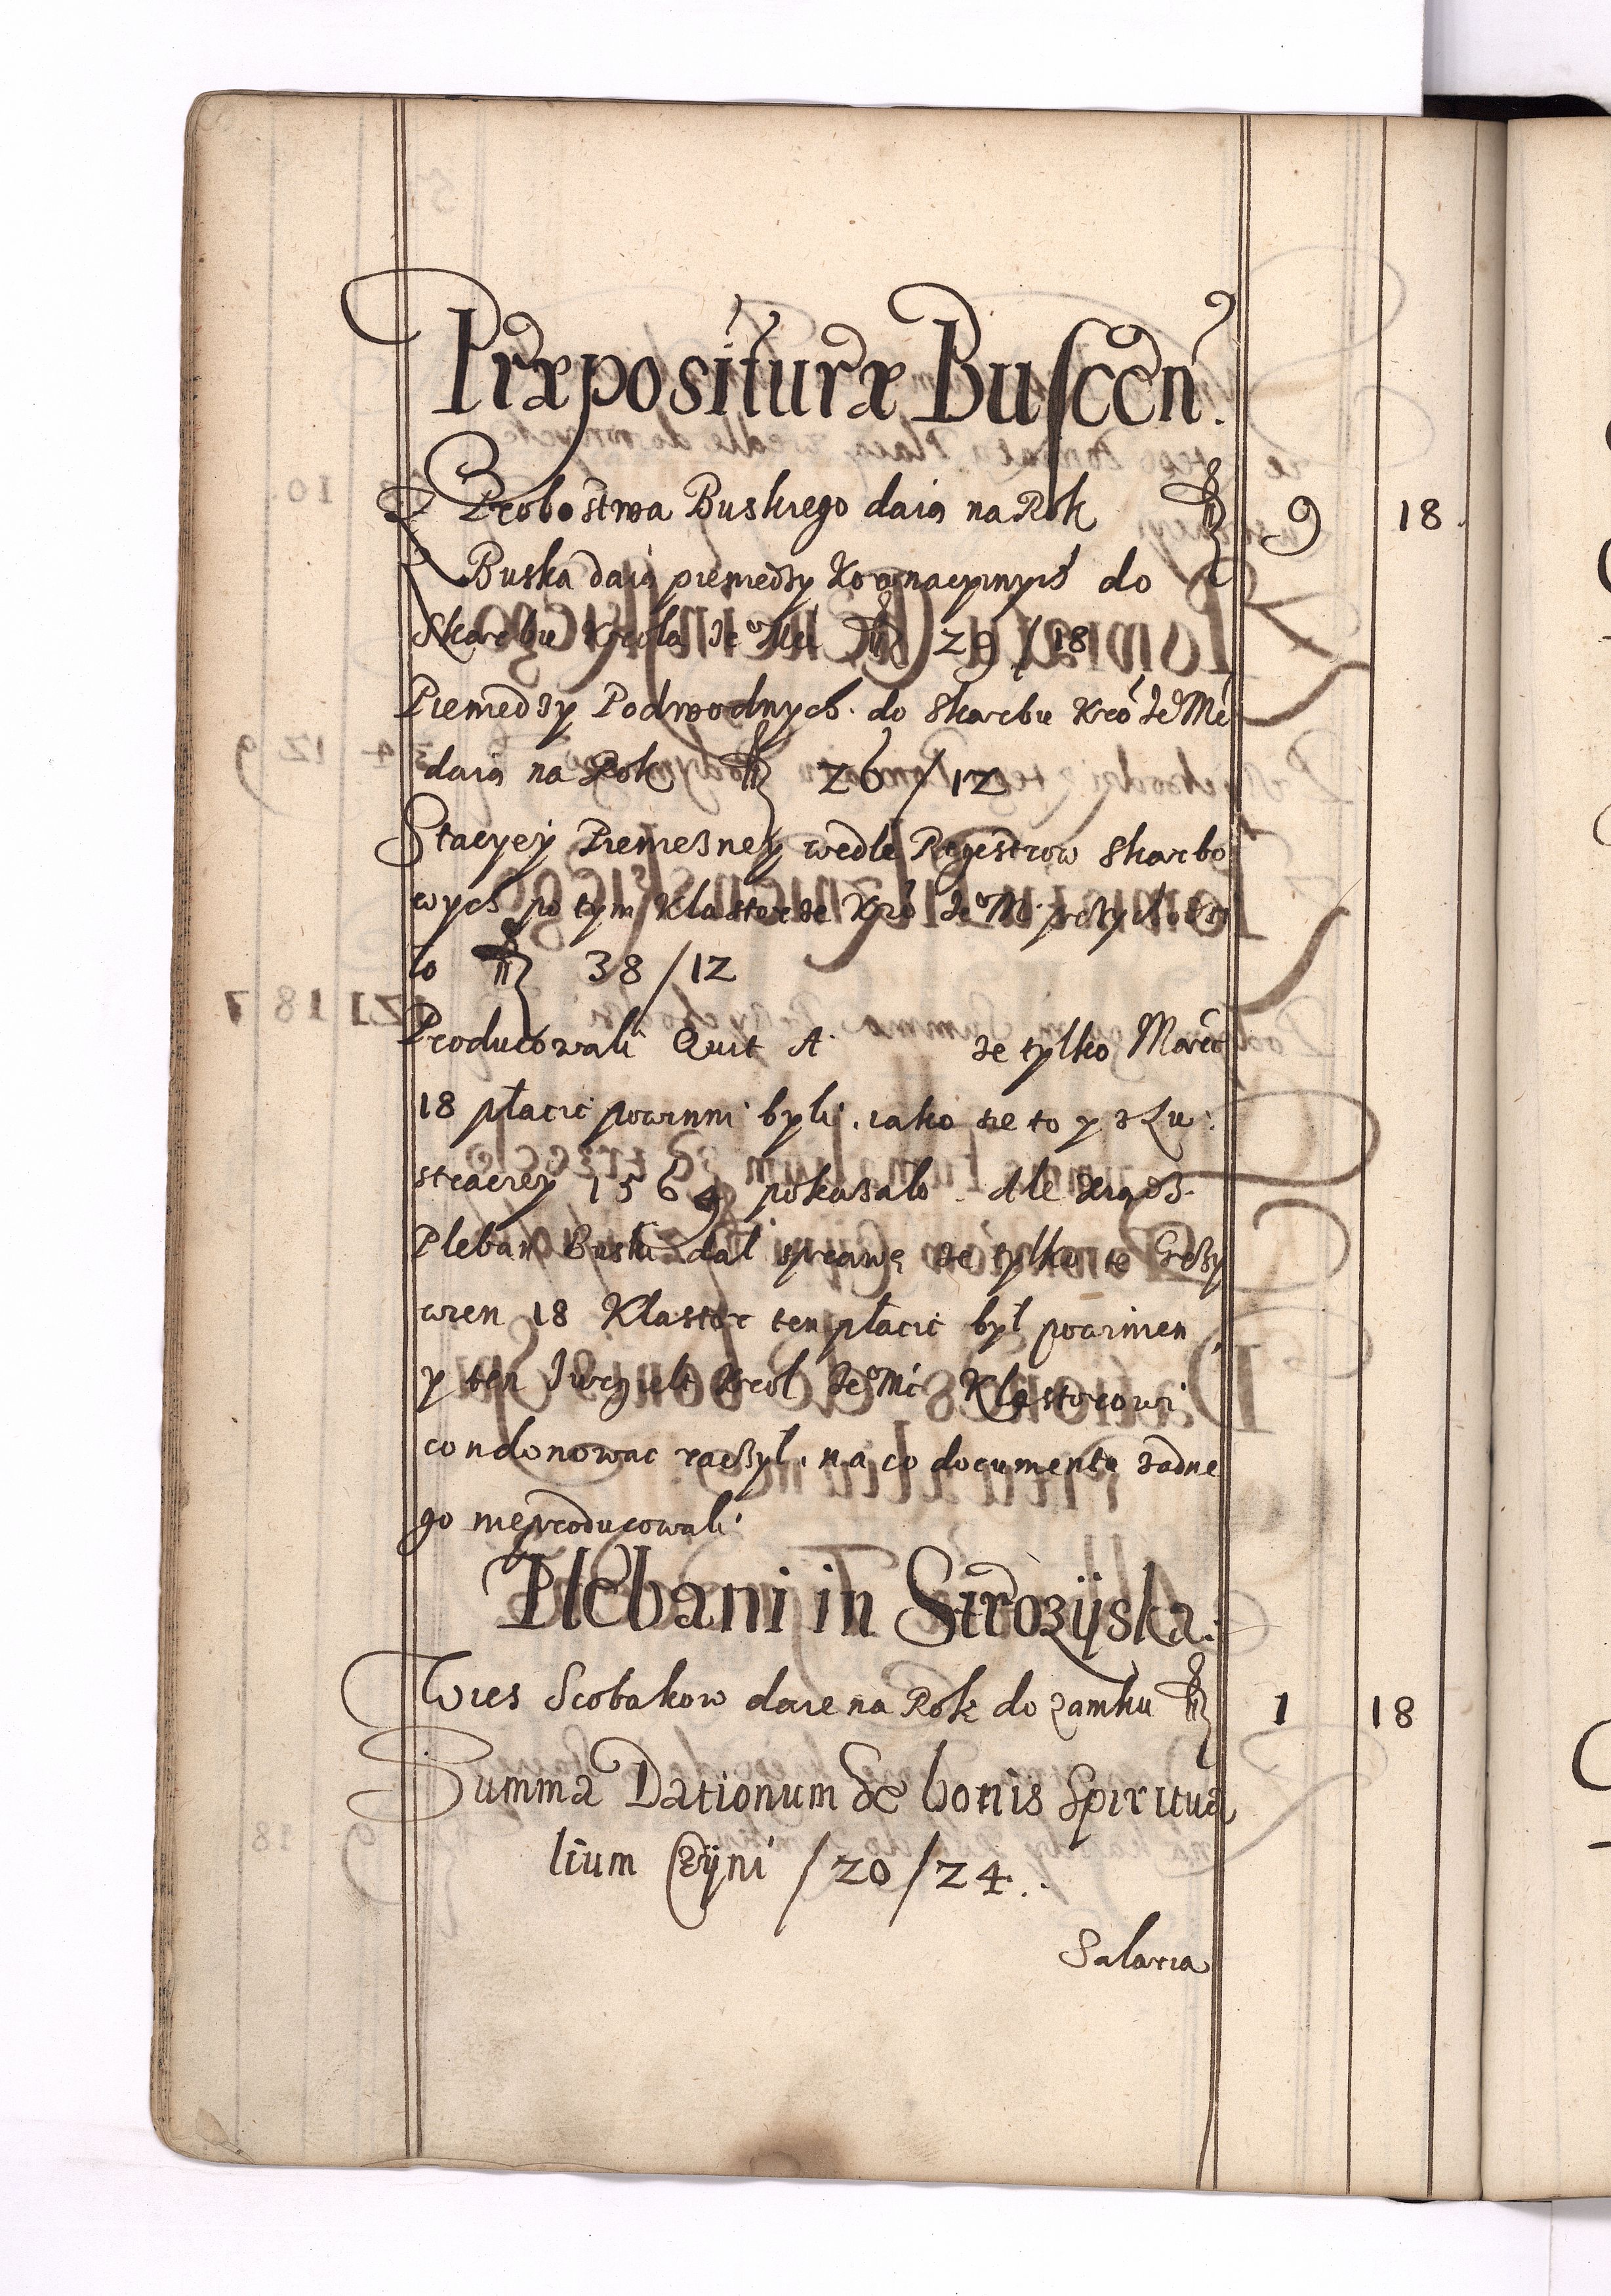 Præpositura Buscen.
Z Probostwa Buskiego daią na Rok fl 9 18
Z Buska daią pieniedzy Koronacyinych do
Skarbu Krola Je Mci fl 29/18
Pieniedzy Podwodnych do Skarbu Kró Je Mci
daią na Rok fl 26/12
Stacyey Pieniezney wedle Regestrow Skarbo
wych po tym Klasztorze Kró Je M. przychodzi
ło fl 38/12
Producowali Quit A. ze tylko Marc
18 płacić powinni byli, iako sie to y z Lu
straciey 1564 pokazało. Ale Xiądz
Pleban Buski dał sprawę ze tylko te Grzy
wien 18 Klasztor ten płacić był powinien
y ten Jurgielt Krol Je Mc Klasztorowi
condonować raczył, na co documentu zadne
go nieproducowali.
Plebani in Strozijska.
Wies Scobakow daie na Rok do zamku fl 1 18
Summa Dationum de bonis Spiritua
lium Czÿni /20/24.
Salaria